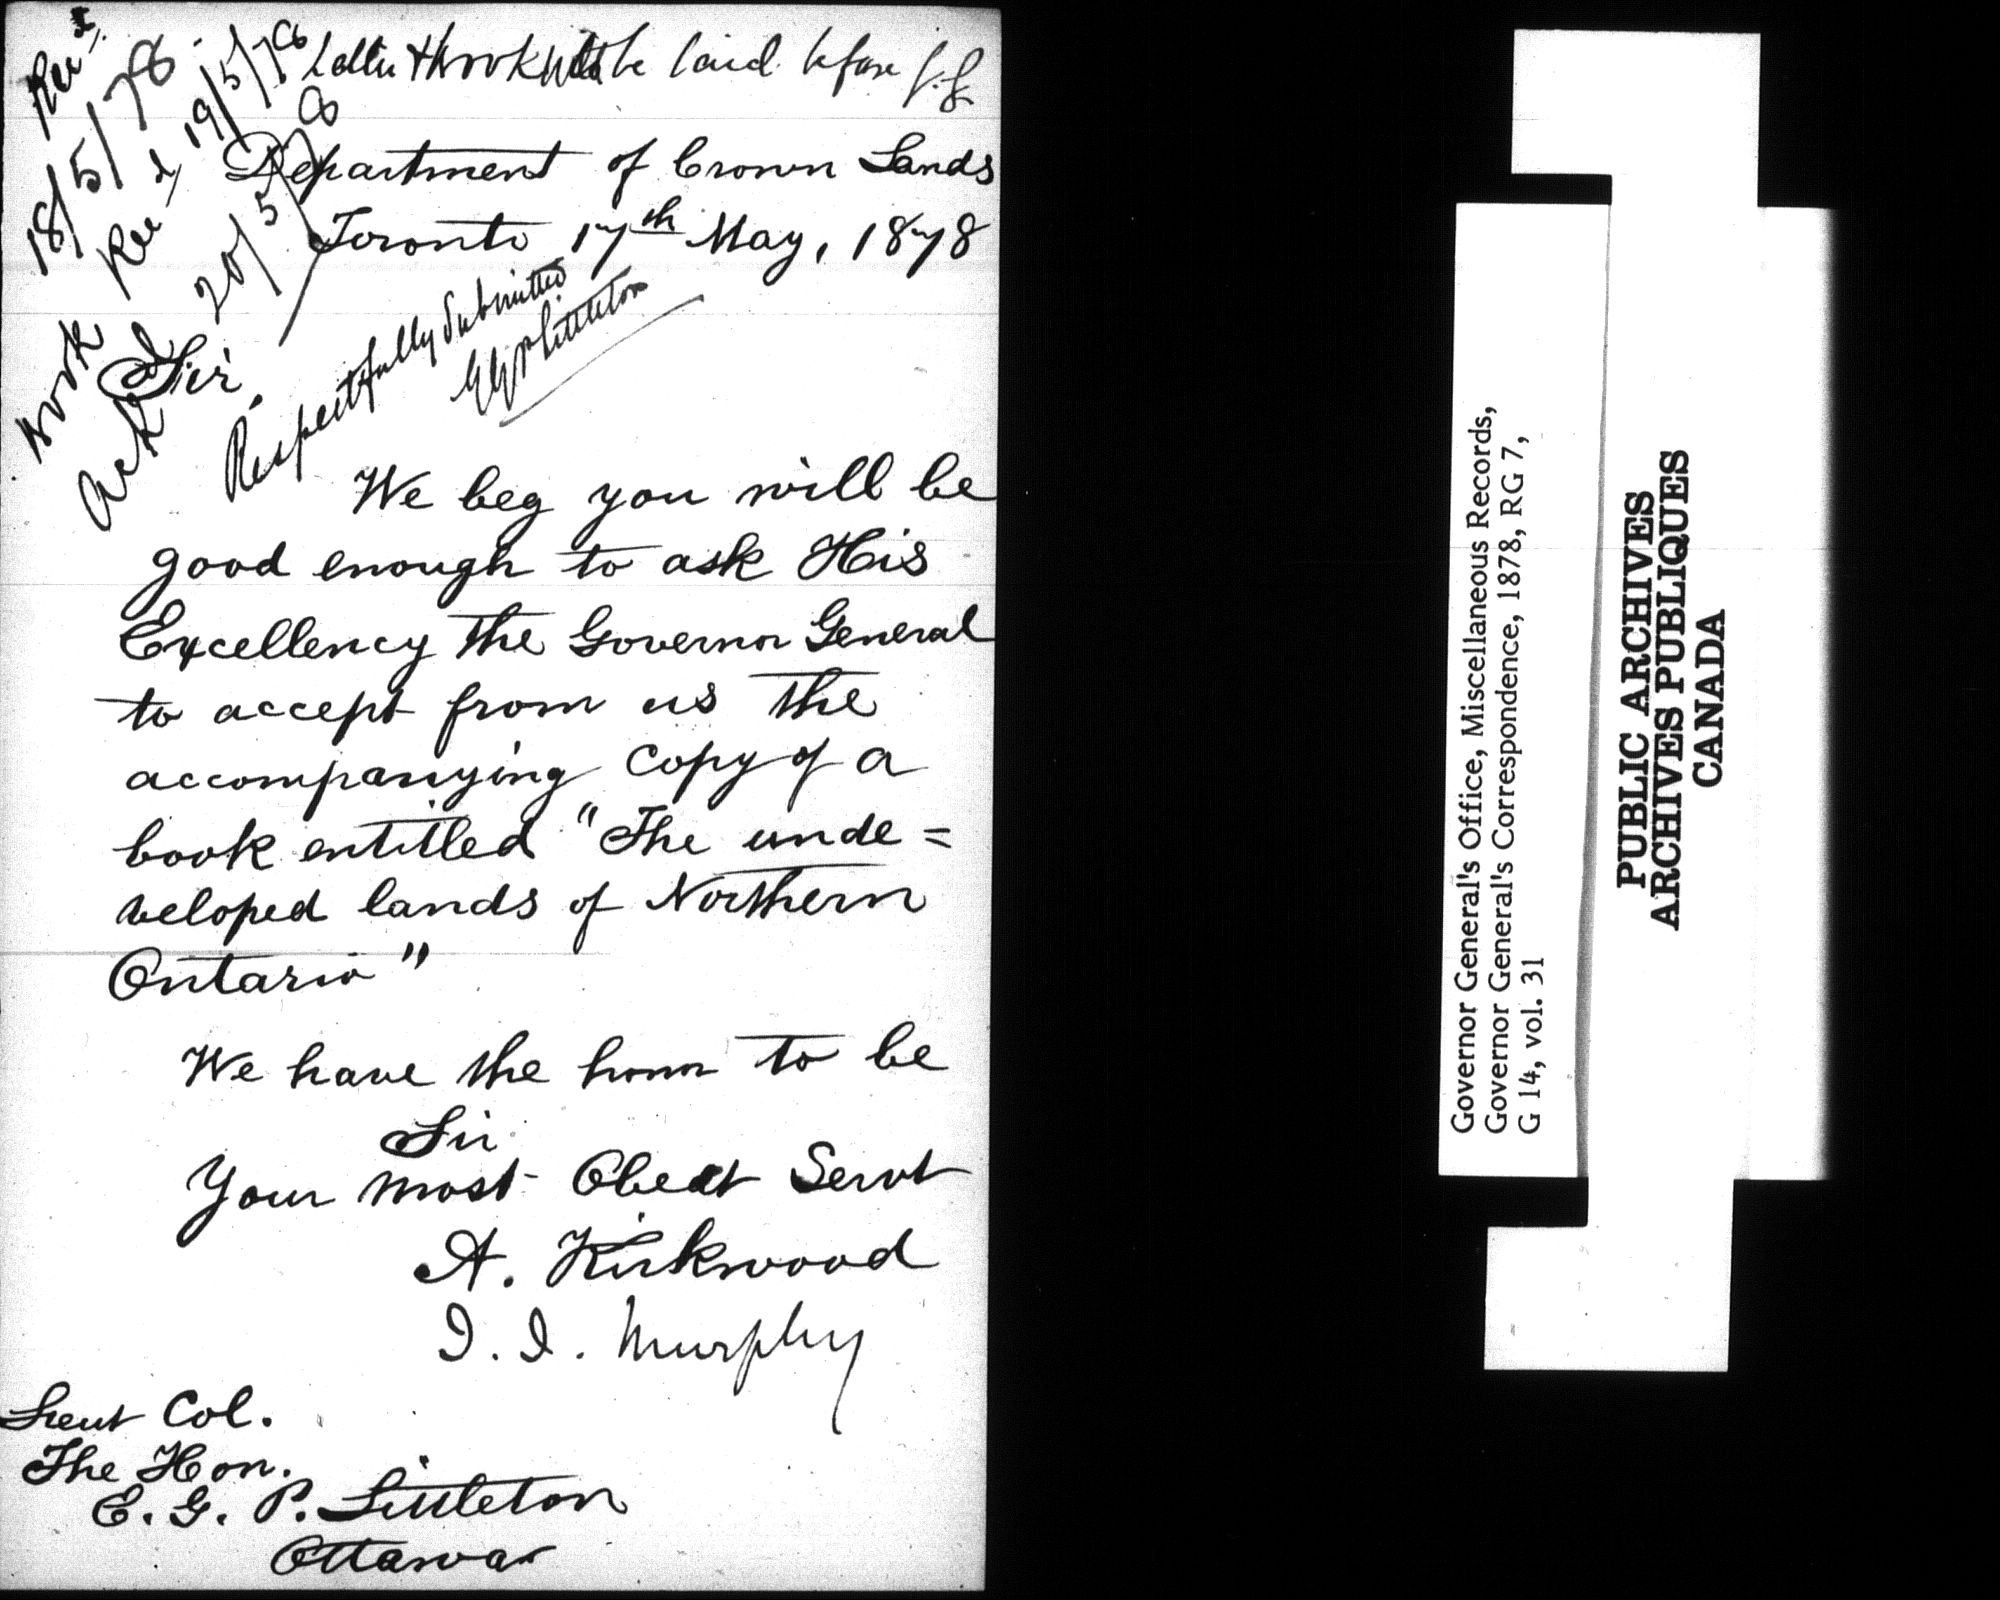 Letter & book to be laid before G.G.
Recd 18/5/78
book Recd 19/5/78
Ackd 20/5/78
Department of Crown Lands
Toronto 17th May, 1878
Respectfully Submitted
EGPLittleton
Sir
We beg you will be
good enough to ask His
Excellency the Governor General
to accept from us the
accompanying copy of a
book entitled "The unde=
veloped lands of Northern
Ontario"
We have the honor to be
Sir
Your most Obedt Servt
A. Kirkwood
J. J. Murphy
Lieut Col.
The Hon.
E. G. P. Littleton
Ottawa
Governor General's Office, Miscellaneous Records,
Governor General's Correspondence, 1878, RG 7,
G 14, vol. 31
PUBLIC ARCHIVES
ARCHIVES PUBLIQUES
CANADA